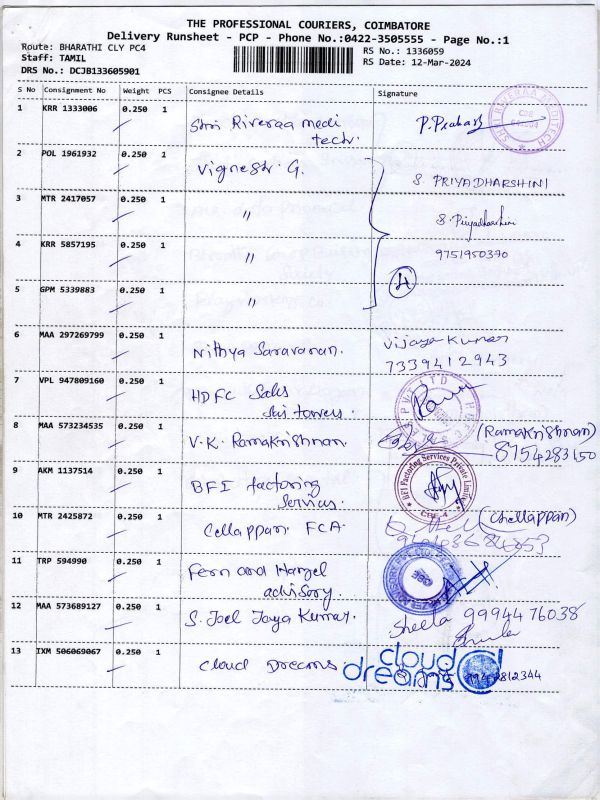 THE PROFESSIONAL COURIERS, COIMBATORE
Delivery Runsheet - PCP - Phone No.:0422-3505555 - Page No.:1
Route: BHARATHI CLY PC4
Staff: TAMIL
DRS No.: DCJB133605901
RS No.: 1336059
RS Date: 12-Mar-2024
S No Consignment No Weight PCS Consignee Details Signature
1 KRR 1333006 0.250 1 Shri Riveraa medi P. Prakash
tech.
SHRI RIVERAA MEDITECH
2 POL 1961932 0.250 1 Vignesh. G. S. PRIYADHARSHINI
3 MTR 2417057 0.250 1 " S. Priyadharshini
4 KRR 5857195 0.250 1 " 9751950370
5 GPM 5339883 0.250 1 " 4
6 MAA 297269799 0.250 1 Nithya Saravanan. Vijaya Kumar
73394 12943
7 VPL 947809160 0.250 1 HDFC Sales
Sri towers.
8 MAA 573234535 0.250 1 V.K. Ramakrishnan. (Ramakrishnan)
8754283150
9 AKM 1137514 0.250 1 BFI factoring
Services.
BFI Factoring Services Private Limited
CBE-4
10 MTR 2425872 0.250 1 Cellappan FCA. (Chellappan)
11 TRP 594990 0.250 1 Fern and Hazel
advisory.
12 MAA 573689127 0.250 1 S. Joel Jaya Kumar. Sheela 9994476038
13 IXM 506069067 0.250 1 Cloud Dreams
cloud
dreams